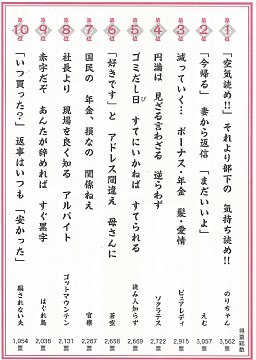 第1位 「空気読め!!」それより部下の 気持ち読め!! のりちゃん 3,562票
第2位 「今帰る」妻から返信「まだいいよ」 えむ 3,057票
第3位 減っていく… ボーナス・年金 髪・愛情 ピュアレディ 2,915票
第4位 円満は 見ざる言わざる 逆らわず ソクラテス 2,722票
第5位 ゴミだし日 すてにいかねば すてられる 読み人知らず 2,669票
第6位 「好きです」と アドレス間違え 母さんに 2,658票
第7位 国民の 年金、損なの 関係ねえ 官様 2,267票
第8位 社長より 現場を良く知る アルバイト ゴットマウンテン 2,131票
第9位 赤字だぞ あんたが辞めれば すぐ黒字 はぐれ鳥 2,036票
第10位 「いつ買った?」返事はいつも「安かった」 騙されない夫 1,954票
得票総数